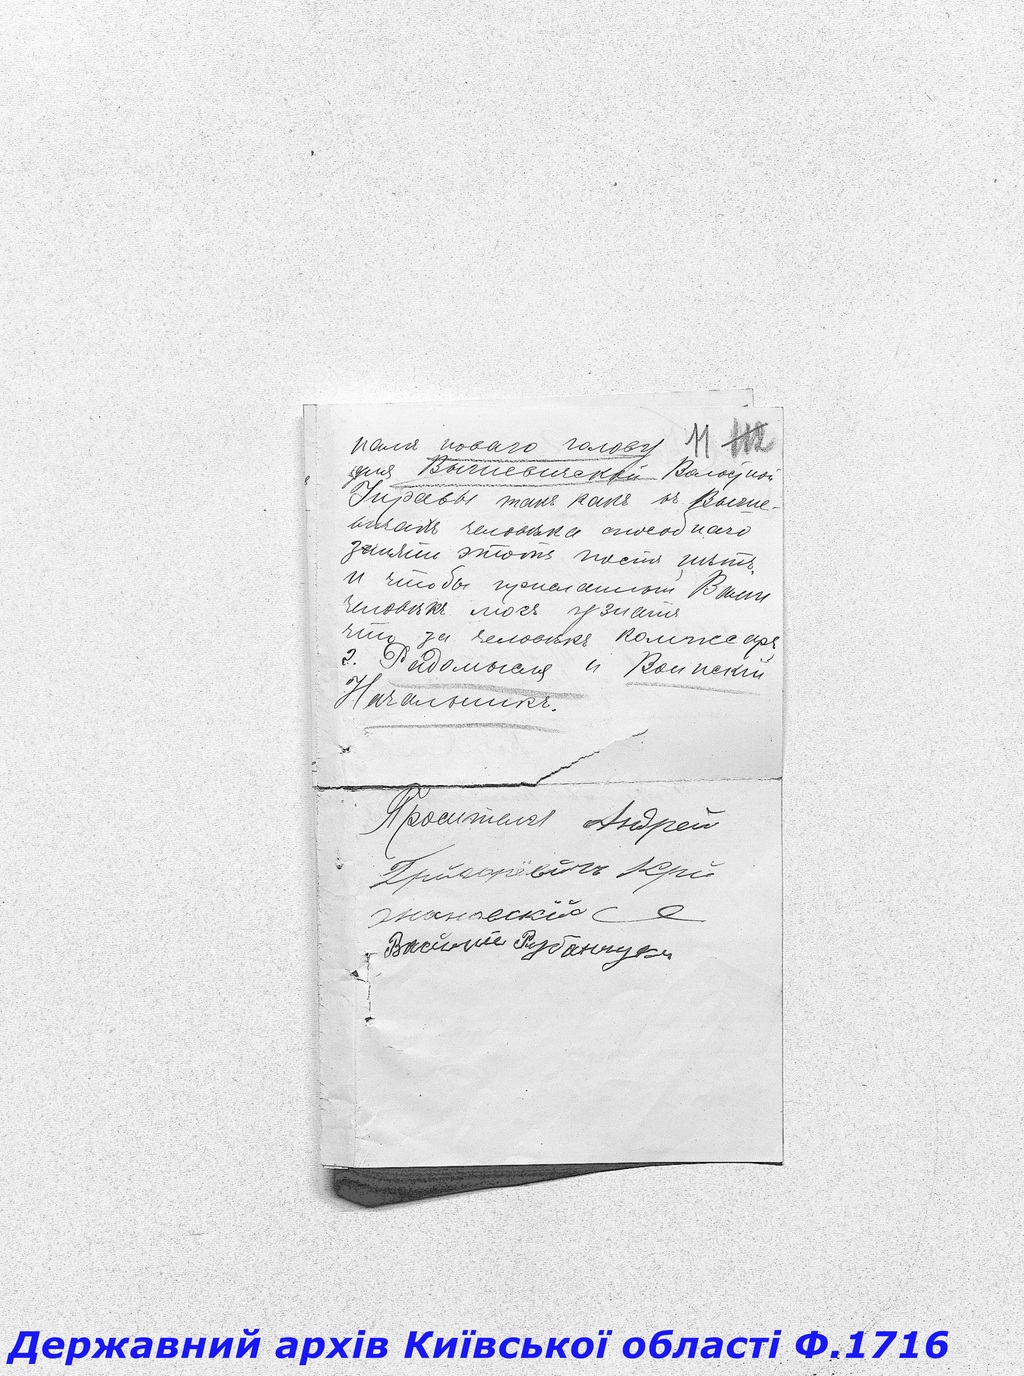 11 112
намъ новаго голову
для Вышевичской Волостной
Управы такъ какъ въ Выше-
вичахъ человѣка способнаго
занять этотъ постъ нѣтъ
и чтобы присланный Вами
человѣкъ могъ узнать
что за человѣкъ комисаръ
г. Радомысля и Воинскій
Начальникъ.
Проситель Андрей
Григорьевичъ Кри
жановскій
Василий Рубанчукъ
Державний архів Київської області Ф.1716